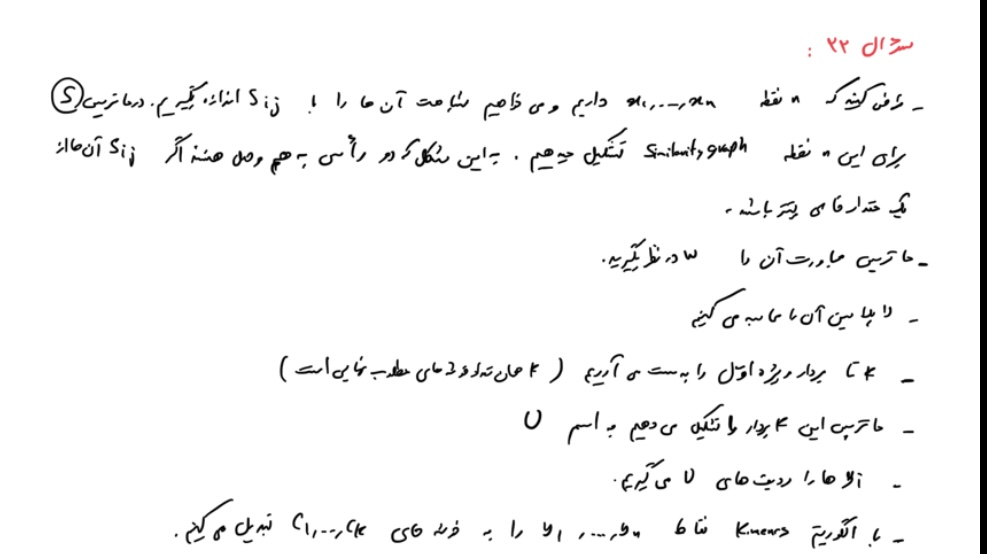 سوال ۲۲ :
- فرض کنید که n نقطه x1,...,xn داریم و می خواهیم شباهت آن ها را با Sij اندازه بگیریم. در ماتریس S
برای این n نقطه Similarity graph تشکیل می دهیم. به این شکل که دو رأس به هم وصل هستند اگر Sij آن ها از
یک مقدار خاصی بیشتر باشد.
- ماتریس مجاورت آن را W در نظر بگیرید.
- لاپلاسین آن را محاسبه می کنیم
- k تا بردار ویژه اول را به دست می آوریم ( k همان تعداد های مطلوب نهایی است )
- ماتریس این k بردار را تشکیل می دهیم به اسم U
- yi ها را ردیف های U می گیریم.
- با الگوریتم Kmeans نقاط y1,...,yn را به خوشه های C1,...,Ck تبدیل می کنیم.